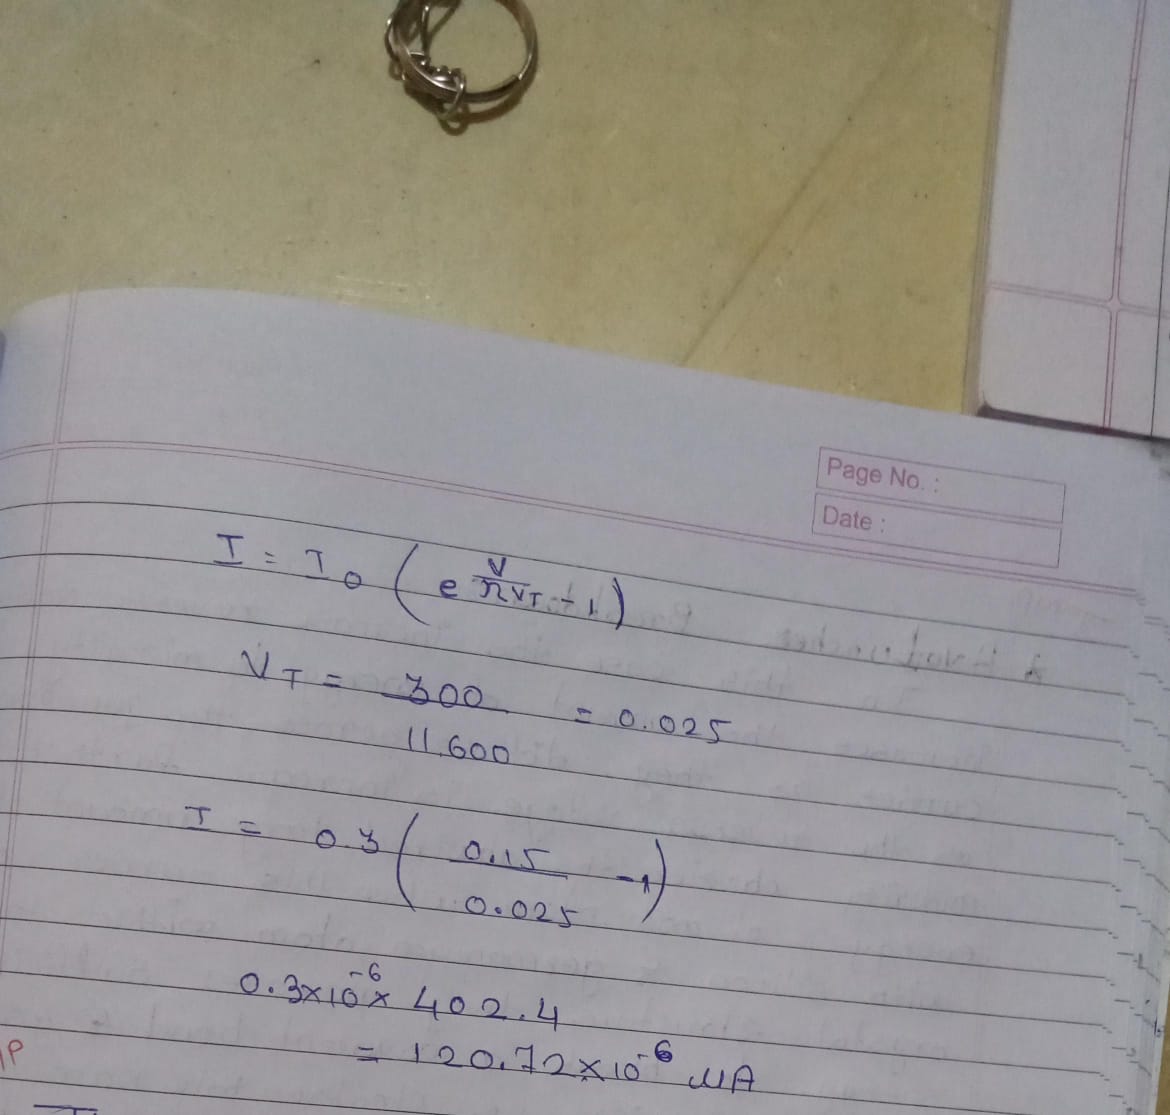 Page No. :
Date :
I = I₀ ( e^(V/nV_T) - 1 )
V_T = 300/11,600 = 0.025
I = 0.3 ( 0.15/0.025 - 1 )
0.3×10⁻⁶ × 402.4
= 120.72×10⁻⁶ μA